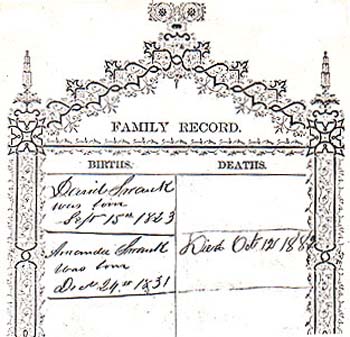 FAMILY RECORD.
BIRTHS. DEATHS.
Swank
was born
Sept 15th 1823
Amanda Swank Died Oct 12
was born
Dec 24th 1831